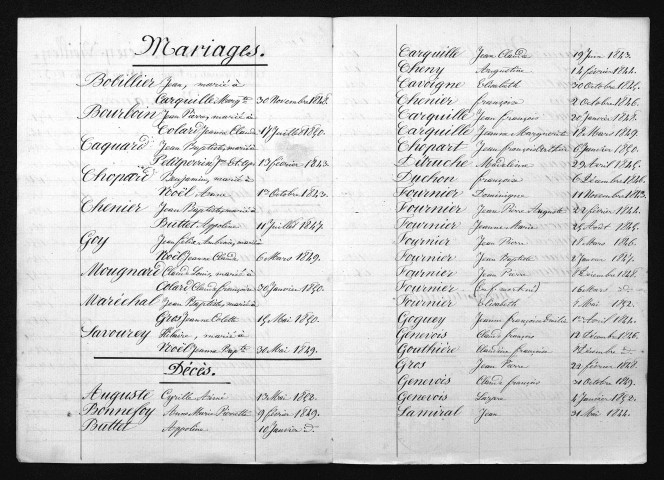 Mariages.
Bobillier Jean, marié à
Carquille Margte 30 Novembre 1848.
Bourloin Jean Pierre, marié à
Colard Jeanne Claude 17 Juillet 1850.
Caquard Jean Baptiste, marié à
Petitperrin 13 février 1843.
Chopard Benjamin, marié à
Noël Anne 1er Octobre 1843.
Chenier Jean Baptiste, marié à
Buttet Appoline 11 Juillet 1847.
Goy Jean félix Ambroise, marié
Noël Jeanne Claude 6 Mars 1849.
Mougnard Claude Louis, marié à
Colard Claude françoise 30 Janvier 1850.
Maréchal Jean Baptiste, marié à
Gros Jeanne Colette 15 Mai 1850.
Savourey Hilaire, marié à
Noël Jeanne Bapte 30 Mai 1849.
Décès.
Auguste Cyrille Aimé 13 Mai 1852.
Bonnefoy Anne Marie Pierrette 9 février 1849.
Buttet Appoline 10 Janvier d°.
Carquille Jean Claude 19 Juin 1843.
Cheny Augustine 14 février 1844.
Cavoigne Elisabeth 30 Octobre 1845.
Chenier françois 2 Octobre 1846.
Carquille Jean françois 20 Janvier 1848.
Carquille Jeanne Marguerite 18 Mars 1849.
Chopart Jean françois 6 Janvier 1850.
Détruche Madeleine 29 Avril 1845.
Duchon françois 6 Décembre 1846.
Fournier Dominique 11 Novembre 1843.
Fournier Jean Pierre Auguste 22 février 1844.
Fournier Jeanne Marie 25 Août 1845.
Fournier Jean Pierre 18 Mars 1846.
Fournier Jean Baptiste 2 Janvier 1847.
Fournier Jean Pierre Décembre 1848.
Fournier (enf. mort né) 16 Mars d°
Fournier Elisabeth 1 Mai 1852.
Goguey Jeanne françoise Emilie 1er Avril 1844.
Genevois Claude françois 12 Décembre 1846.
Gouthière Claudine françoise Décembre d°
Gros Jean Pierre 22 février 1848.
Genevois Claude françois 31 Octobre 1849.
Genevois Lazare 4 Janvier 1852.
Lamiral Jean 31 Mai 1844.